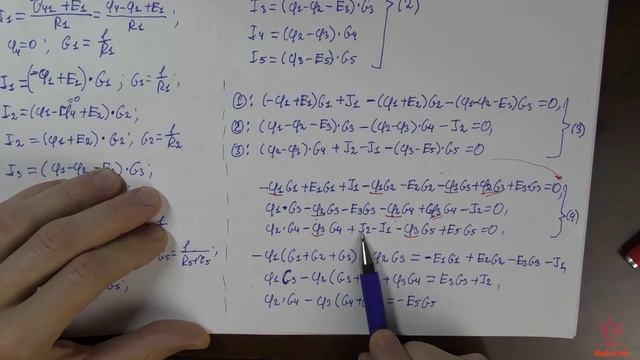 I1 = (φ41+E1)/R1 = (φ4-φ1+E1)/R1 ;
φ4=0 ; G1 = 1/R1
I1 = (-φ1+E1)·G1 ; G1 = 1/R1 ;
I2 = (φ1-φ4+E2)·G2 ;
I2 = (φ1+E2)·G2 ; G2 = 1/R2
I3 = (φ1-φ2-E3)·G3 ;
I3 = (φ1-φ2-E3)·G3
I4 = (φ2-φ3)·G4
I5 = (φ3-E5)·G5
(2)
①: (-φ1+E1)G1 + J1 - (φ1+E2)G2 - (φ1-φ2-E3)G3 = 0,
②: (φ1-φ2-E3)·G3 - (φ2-φ3)·G4 - J2 = 0,
③: (φ2-φ3)·G4 + J2 - J1 - (φ3-E5)·G5 = 0
(3)
-φ1G1 + E1G1 + J1 - φ1G2 - E2G2 - φ1G3 + φ2G3 + E3G3 = 0,
φ1·G3 - φ2G3 - E3G3 - φ2G4 + φ3G4 - J2 = 0,
φ2·G4 - φ3G4 + J2 - J1 - φ3G5 + E5G5 = 0;
(4)
-φ1(G1+G2+G3) φ2G3 = -E1G1 + E2G2 - E3G3 - J1,
φ1G3 - φ2(G3 + φ3G4 = E3G3 + J2,
φ2·G4 - φ3(G4+ = -E5G5